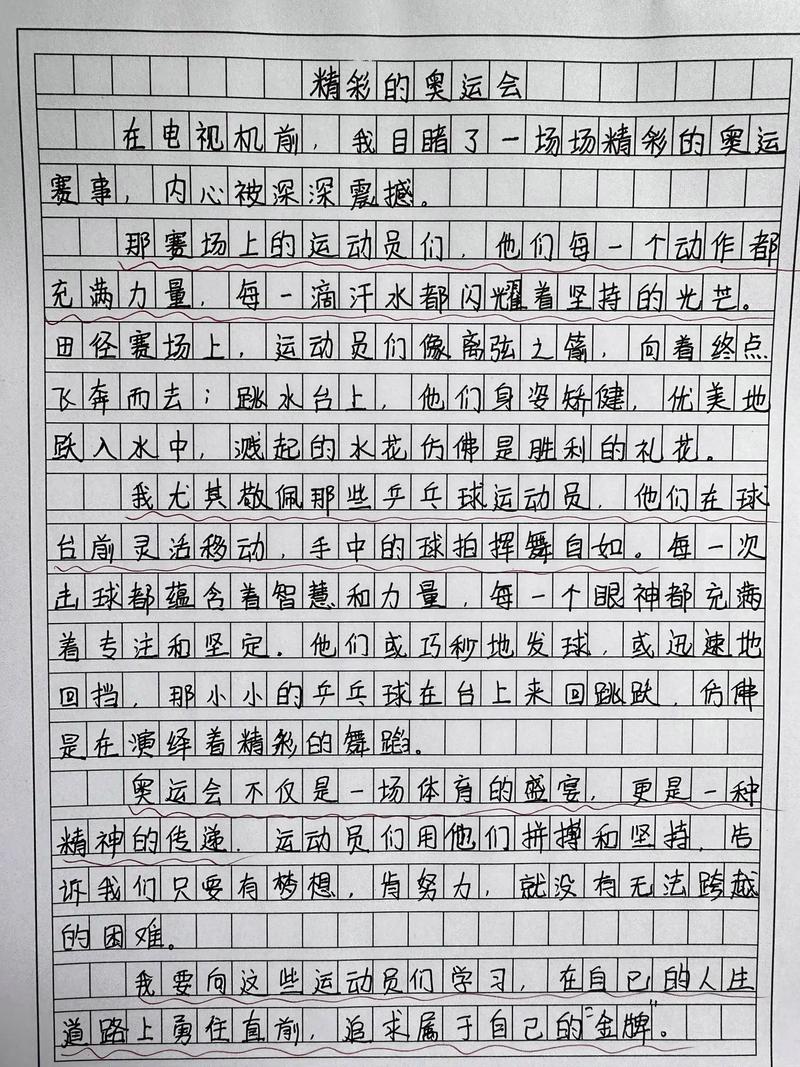 精彩的奥运会
在电视机前，我目睹了一场场精彩的奥运
赛事，内心被深深震撼。
那赛场上的运动员们，他们每一个动作都
充满力量，每一滴汗水都闪耀着坚持的光芒。
田径赛场上，运动员们像离弦之箭，向着终点
飞奔而去；跳水台上，他们身姿矫健，优美地
跃入水中，溅起的水花仿佛是胜利的礼花。
我尤其敬佩那些乒乓球运动员，他们在球
台前灵活移动，手中的球拍挥舞自如。每一次
击球都蕴含着智慧和力量，每一个眼神都充满
着专注和坚定。他们或巧秒地发球，或迅速地
回挡，那小小的乒乓球在台上来回跳跃，仿佛
是在演绎着精彩的舞蹈。
奥运会不仅是一场体育的盛宴，更是一种
精神的传递，运动员们用他们拼搏和坚持，告
诉我们只要有梦想，肯努力，就没有无法跨越
的困难。
我要向这些运动员们学习，在自己的人生
道路上勇往直前，追求属于自己的“金牌”。